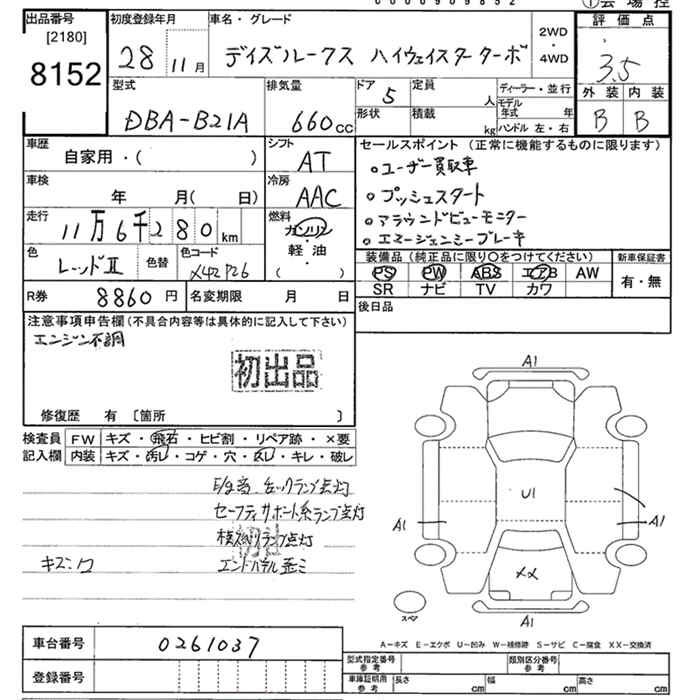 ①会場控
出品番号
[2180]
8152
初度登録年月
28 11月
車名・グレード
デイズルークス ハイウェイスターターボ
2WD
・
4WD
評価点
3.5
外装 内装
B B
型式
DBA-B21A
排気量
660cc
ドア
5
定員
人
形状
積載
kg
ディーラー・並行
モデル年式 年
ハンドル 左・右
車歴
自家用・( )
シフト
AT
車検
年 月( 日)
冷房
AAC
走行
11万6千280km
燃料
ガソリン
・
軽・油
・
( )
色
レッドⅡ
色替
色コード
X42 P26
R券
8860円
名変期限 月 日
セールスポイント (正常に機能するものに限ります)
○ユーザー買取車
○プッシュスタート
○アラウンドビューモニター
○エマージェンシーブレーキ
装備品(純正品に限り○をつけてください)
PS PW ABS エアB AW
SR ナビ TV カワ
新車保証書
有・無
後日品
注意事項申告欄(不具合内容等は具体的に記入して下さい)
エンジン不調
初出品
修復歴 有 〔箇所 〕
検査員
記入欄
FW キズ・飛石・ヒビ割・リペア跡・×要
内装 キズ・汚し・コゲ・穴・スレ・キレ・破レ
セーフティサポート系ランプ点灯
A1
U1
A1
A1
XX
A1
スペア
車台番号
0261037
登録番号
A-キズ E-エクボ U-凹み W-補修跡 S-サビ C-腐食 XX-交換済
型式指定番号
参考
類別区分番号
参考
車庫証明用
参考
長さ cm 幅 cm 高さ cm